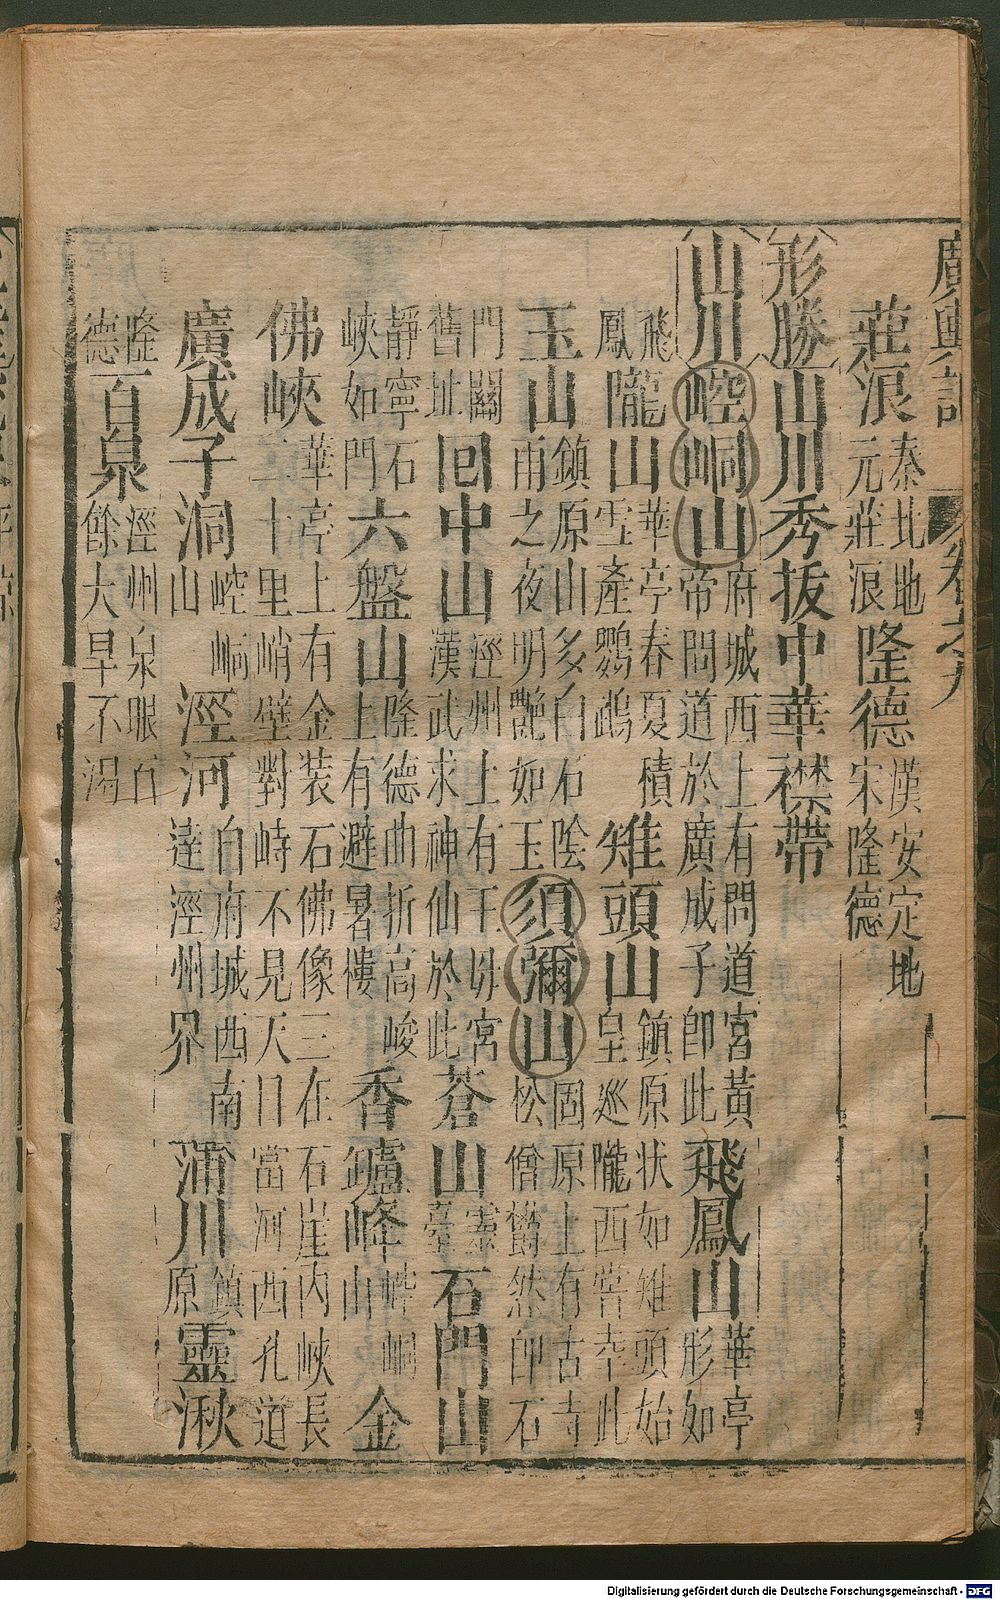 廣輿記 卷之九
莊浪秦北地元莊浪隆德漢安定地宋隆德
形勝山川秀抜中華襟帶
山川崆峒山府城西上有問道宮黃帝問道於廣成子即此飛鳳山華亭形如
飛鳳隴山華亭春夏積雪產鸚鵡雉頭山鎮原状如雉頭始皇巡隴西嘗幸此
玉山鎮原山多白石陰雨之夜明艷如玉須彌山固原上有古寺松僧欝然即石
門關舊址回中山涇州上有王母宮漢武求神仙於此蒼山靈臺石門山
靜寧石峽如門六盤山隆德曲折高峻上有避暑樓香鑪峰崆峒山金
佛峽華亭上有金裝石佛像三在石崖内峽長二十里峭壁對峙不見天日當河西孔道
廣成子洞崆峒山涇河自府城西南達涇州界蒲川鎮原靈湫
隆德百泉涇州泉眼百餘大旱不涸
Digitalisierung gefördert durch die Deutsche Forschungsgemeinschaft - DFG